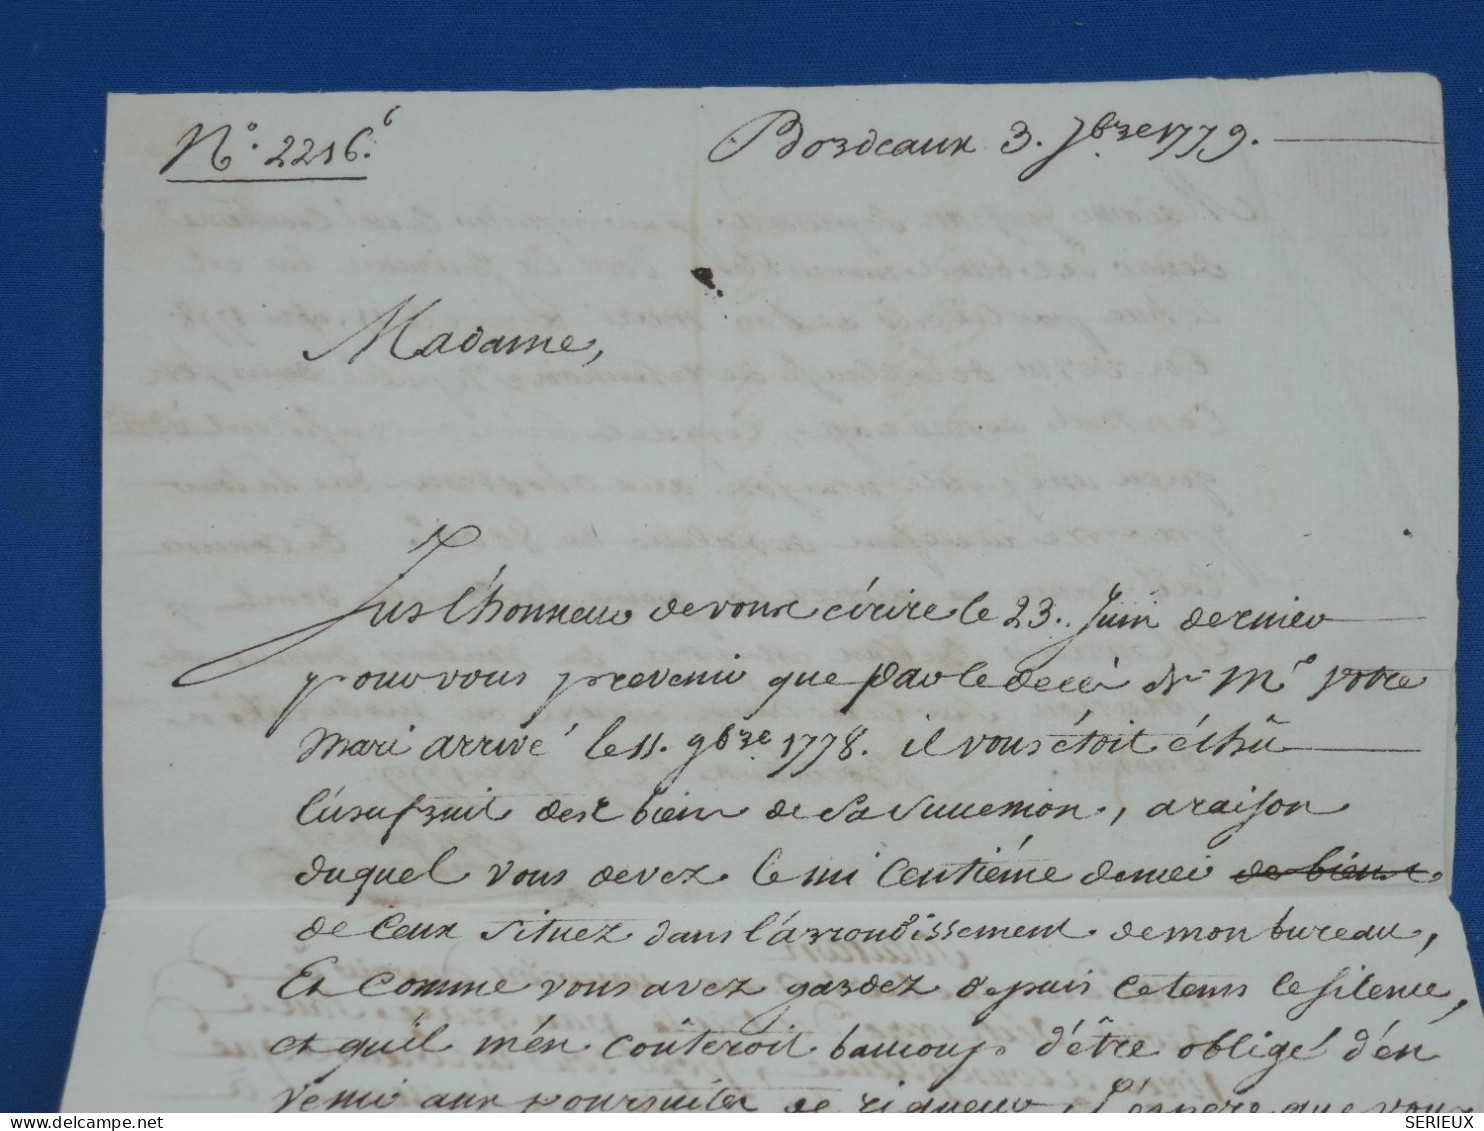 N.° 2216.6
Bordeaux 3. 7b.re 1779.
Madame,
J'us l'honneur de vous écrire le 23. Juin dernier
pour vous prevenir que par le decés de M.r votre
mari arrivé le 11. 9b.re 1778. il vous étoit échû
l'usufruit des biens de sa succession, a raison
duquel vous devez le mi Centiéme denier de biens
de Ceux situez dans l'arrondissement de mon bureau,
Et comme vous avez gardez depuis ce tems le silence,
et qu'il m'en coûteroit baucoup d'être obligé d'en
venir aux poursuites de rigueur, J'espere que vous
SERIEUX